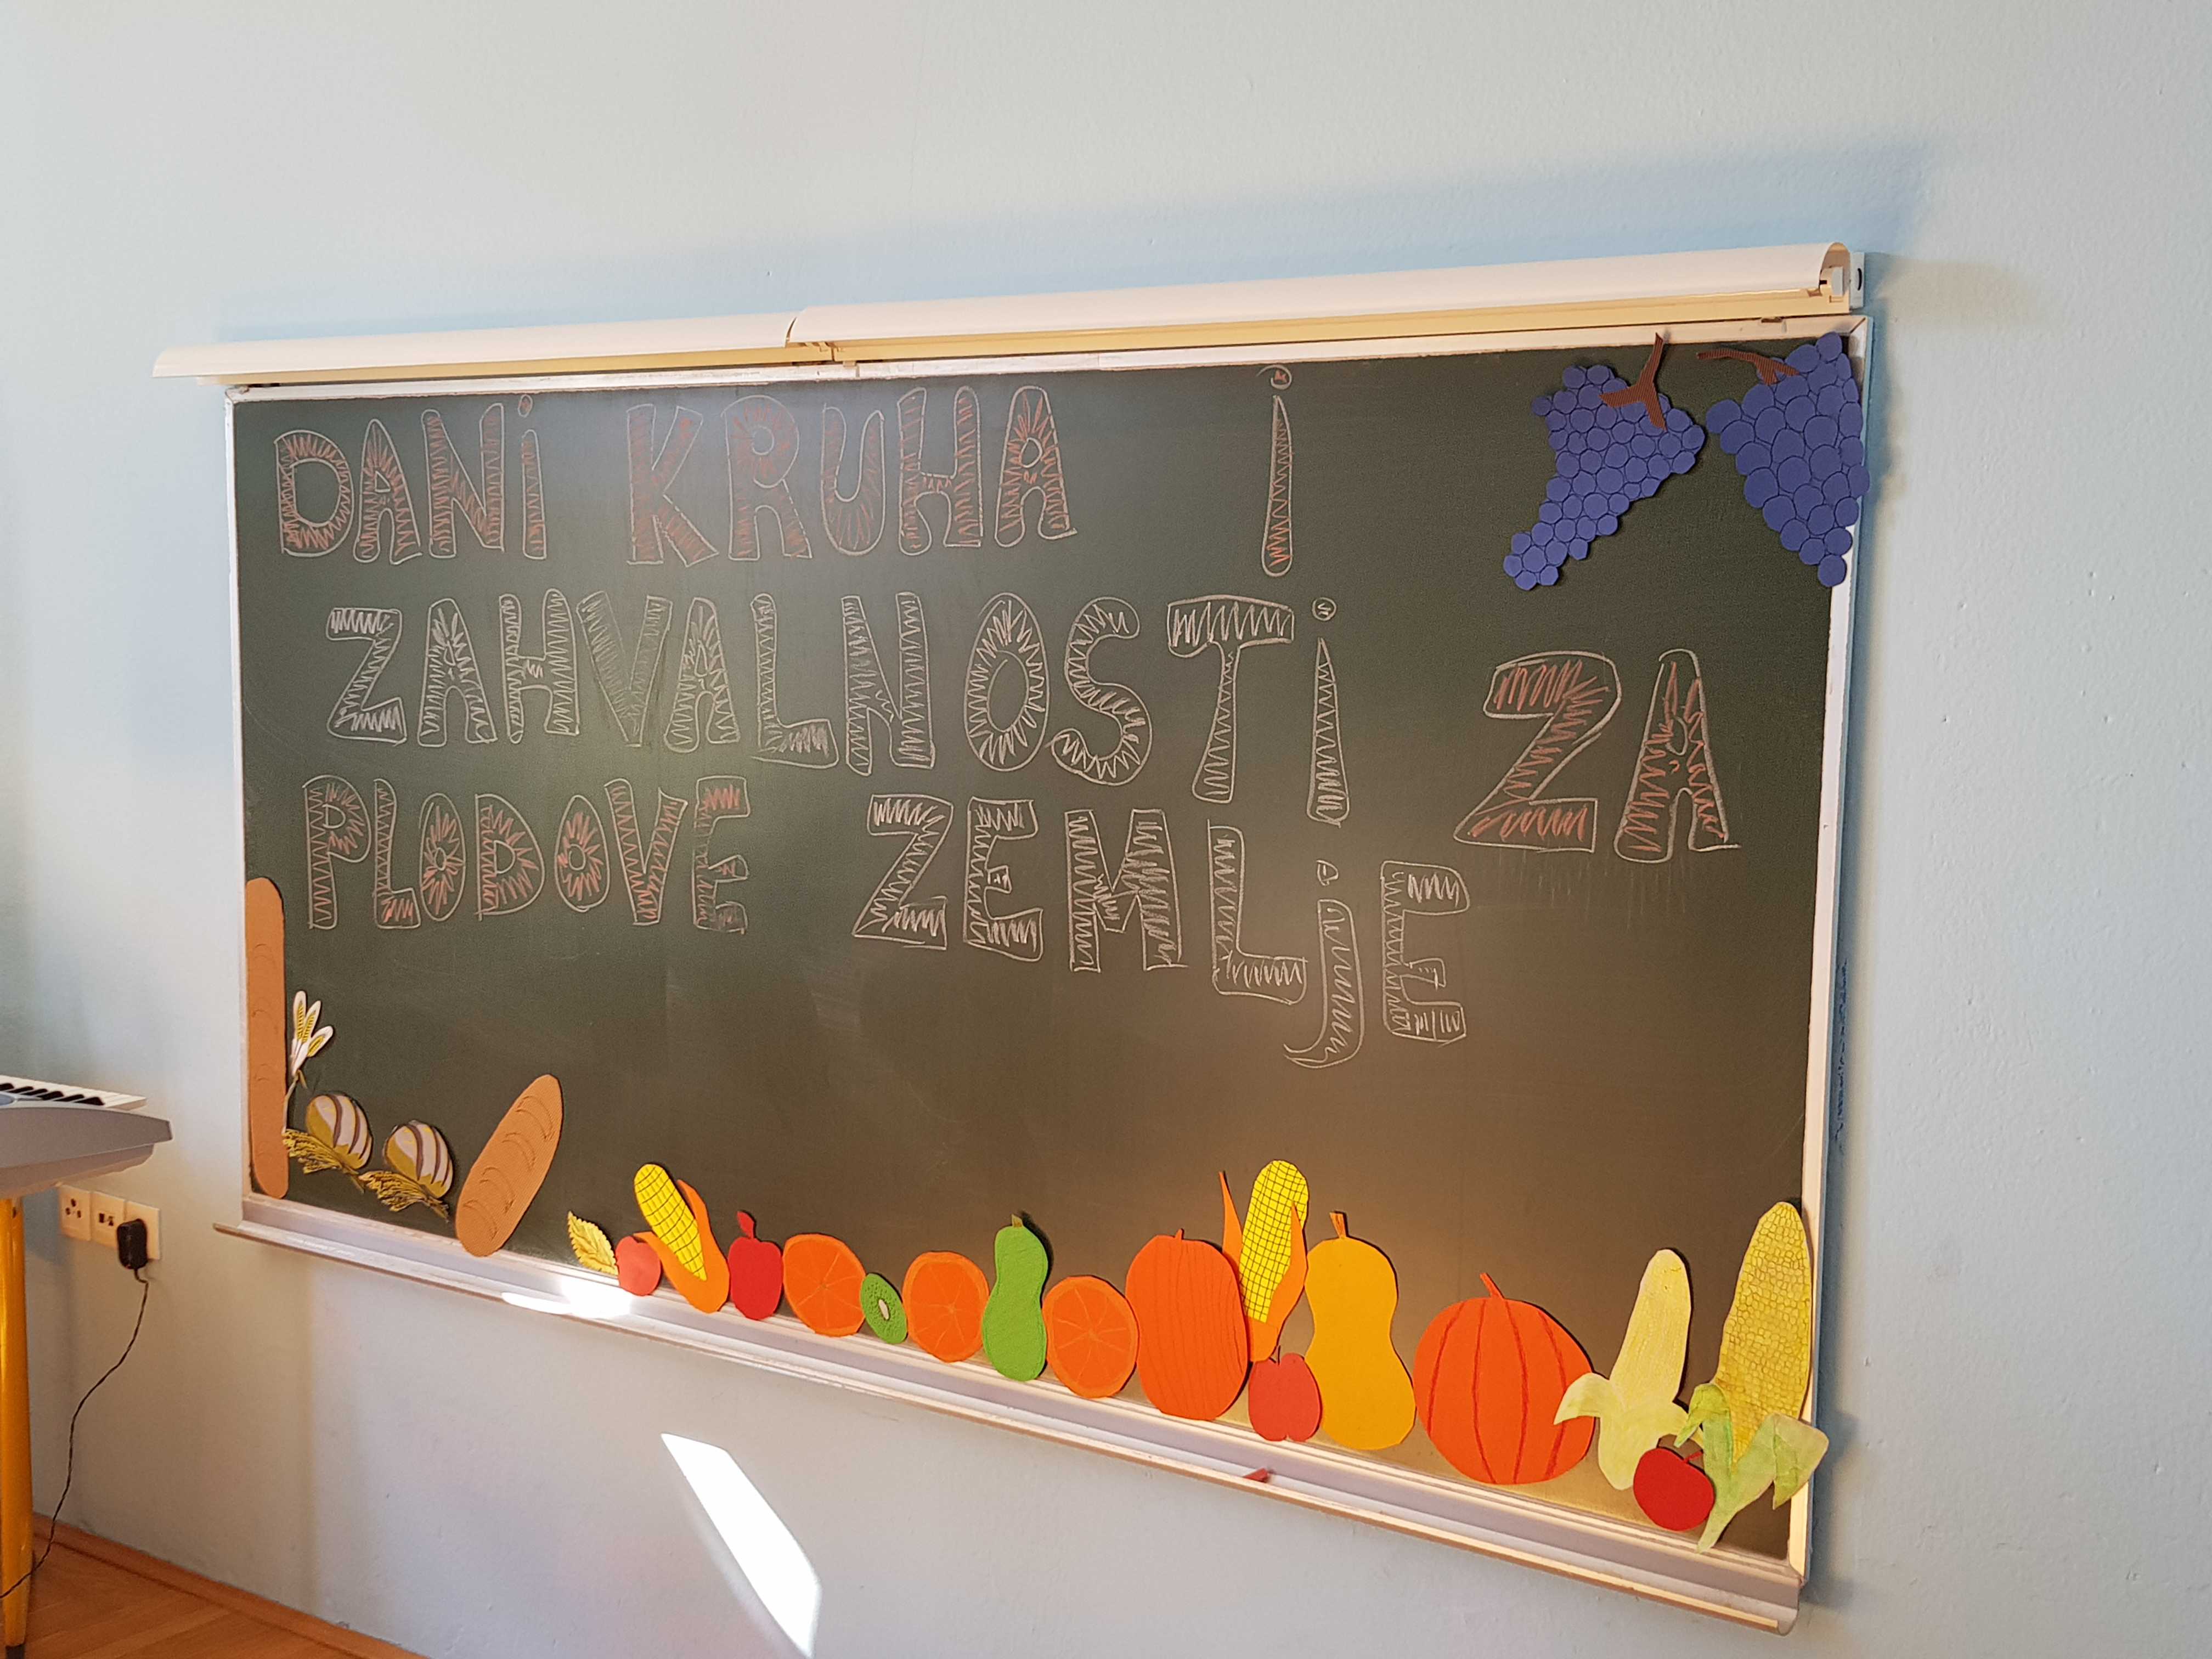 DANi KRUHA i
ZAHVALNOSTi ZA
PLODOVE ZEMLjE